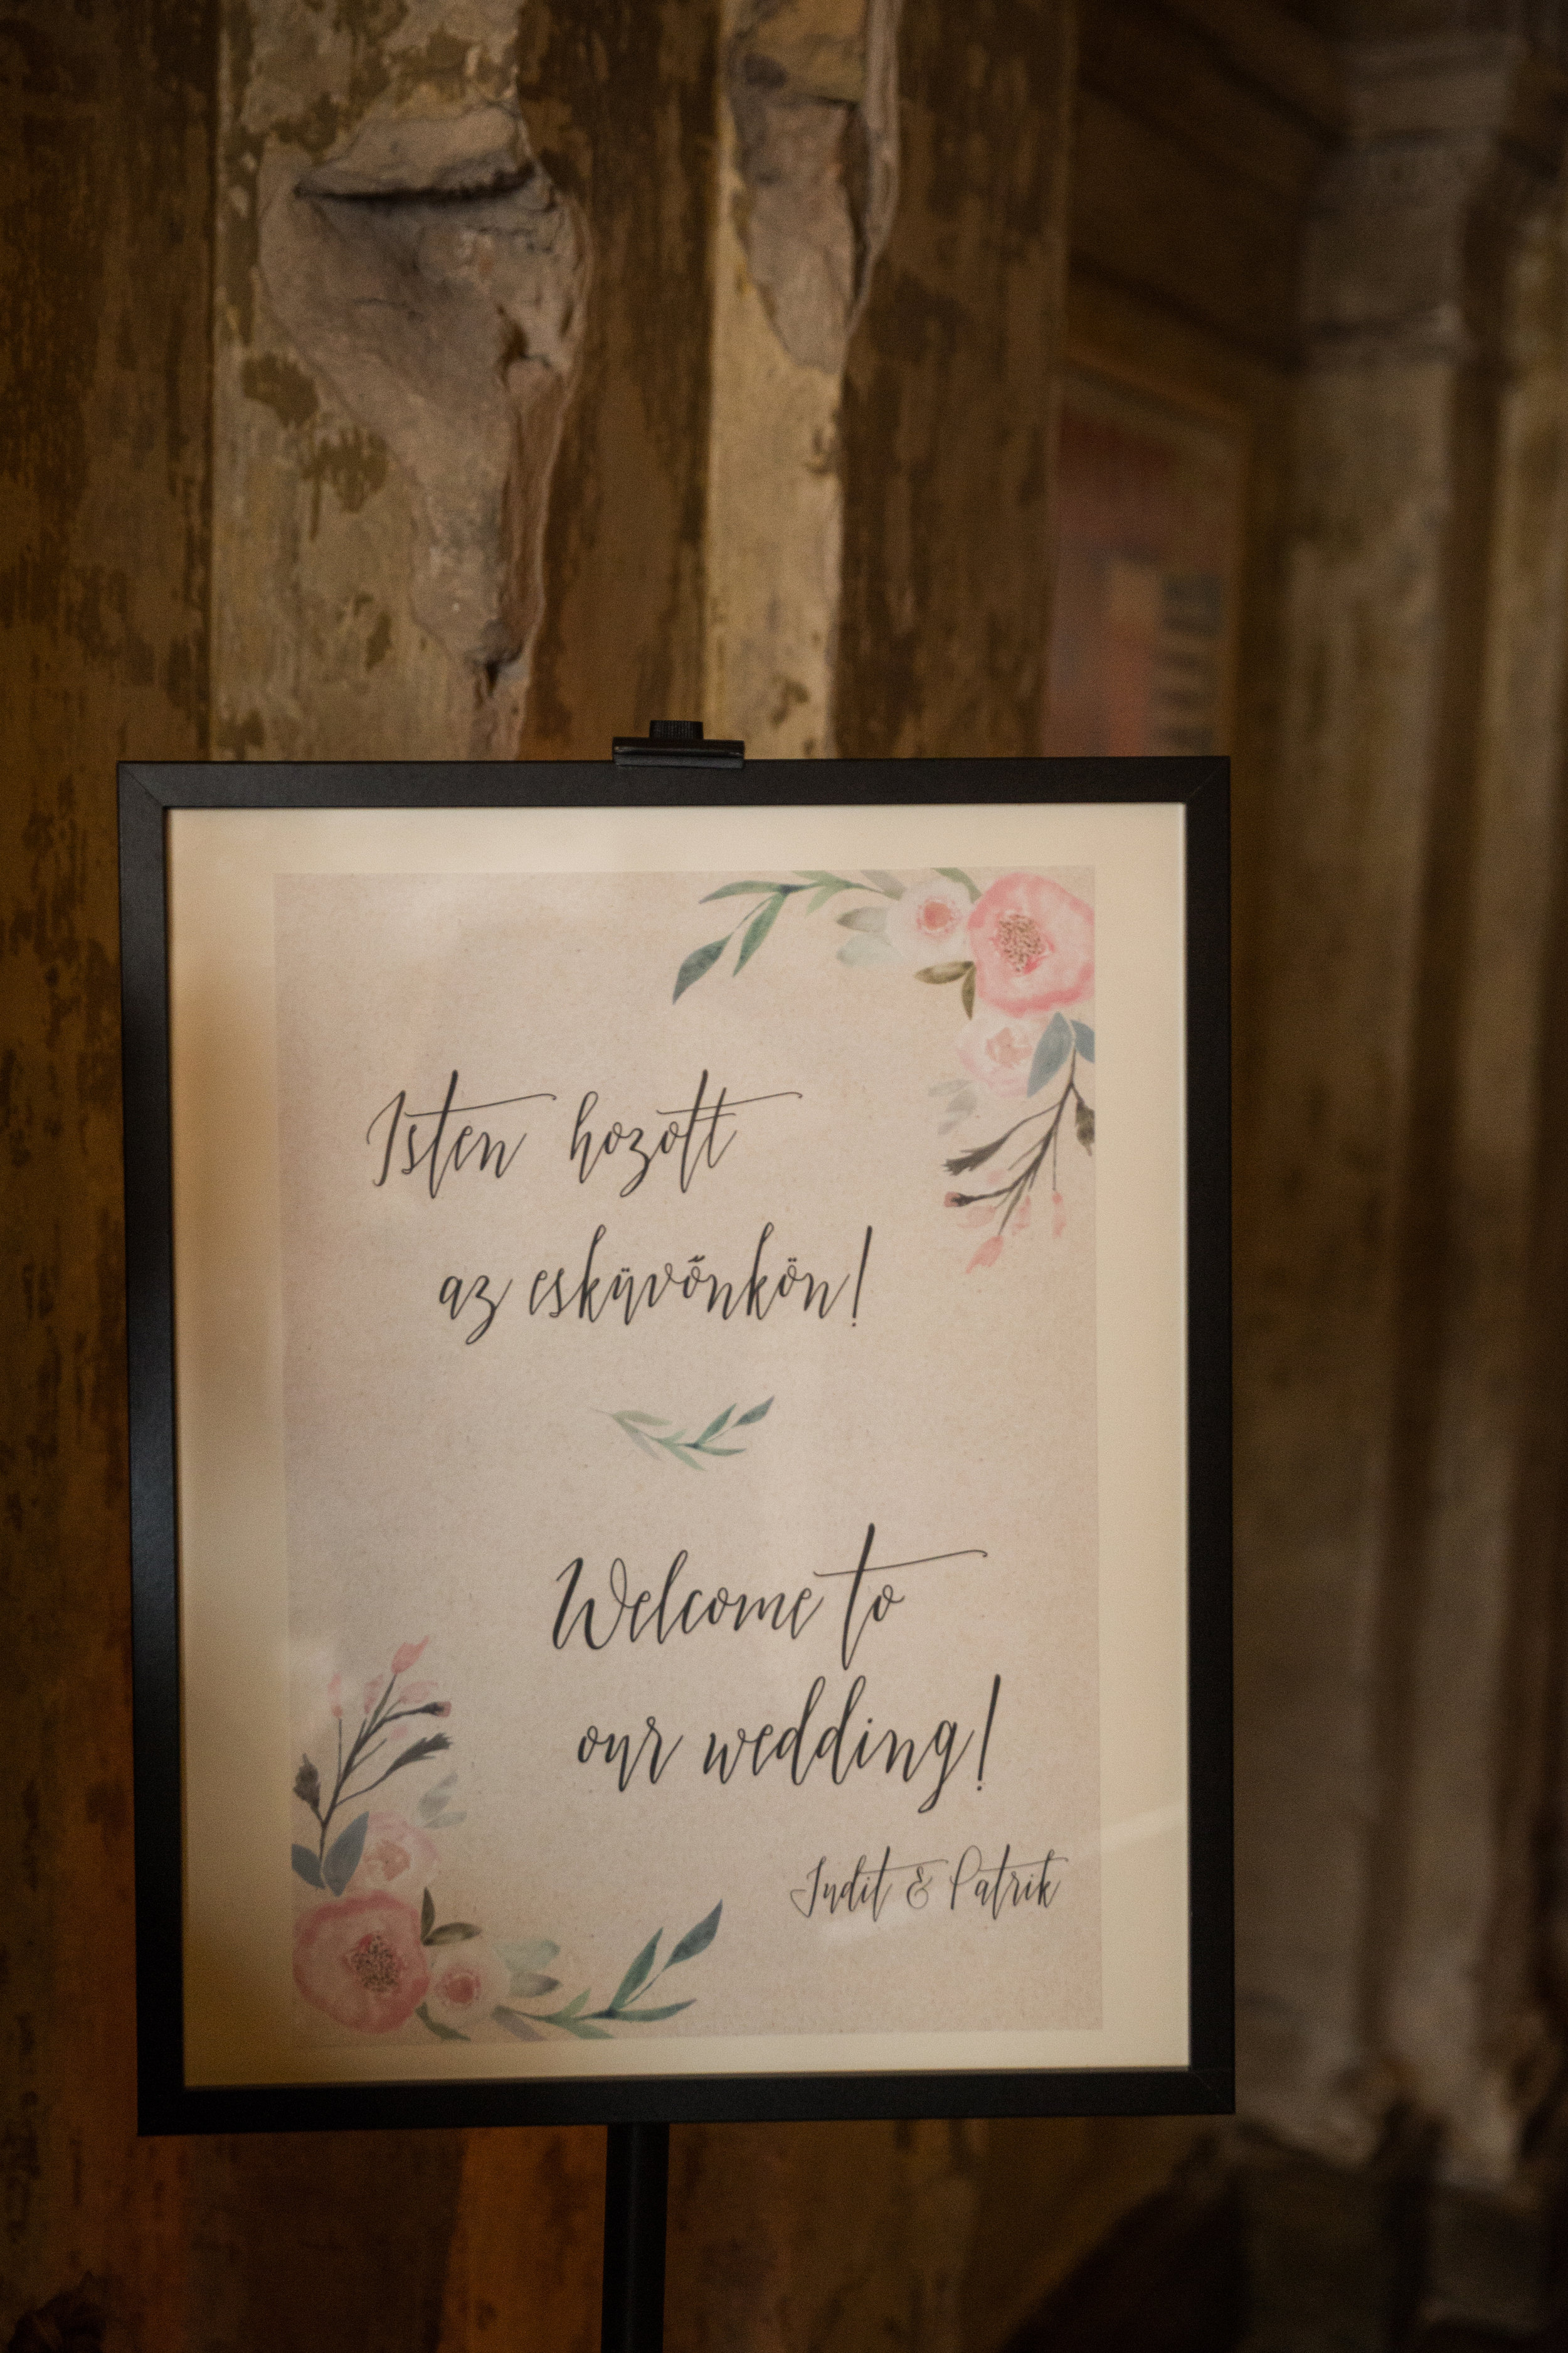 Isten hozott
az esküvőnkön!
Welcome to
our wedding!
Judit & Patrik